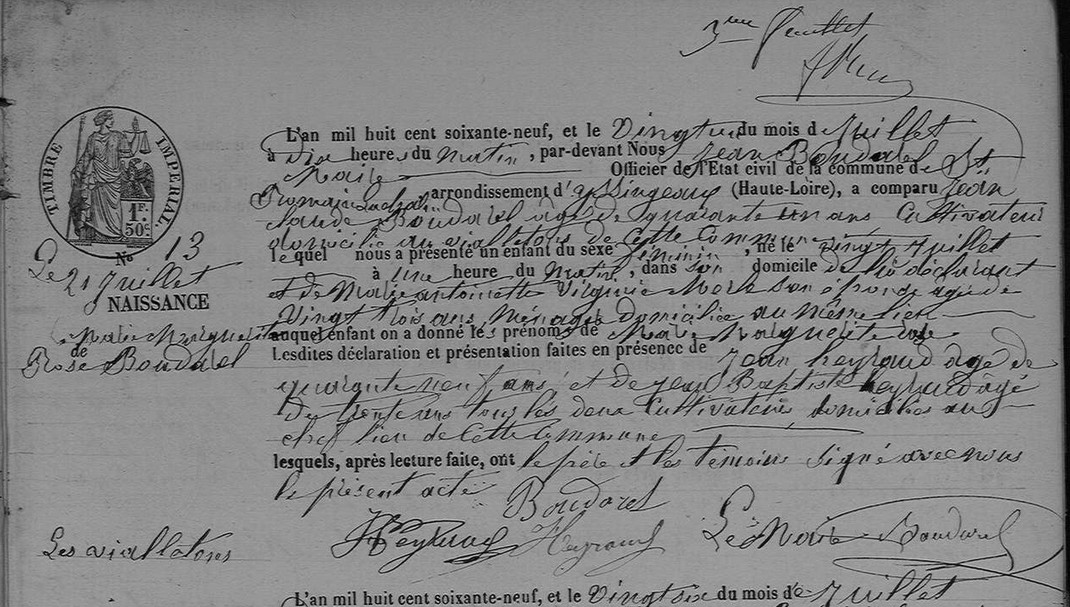 3me feuillet
TIMBRE IMPERIAL
1 F. 50c
No 13
Le 21 Juillet
NAISSANCE
de
Marie Marguerite
Rose Boudarel
Les viallatons
L'an mil huit cent soixante-neuf, et le Vingt un du mois de Juillet
à dix heures du matin, par-devant Nous Jean Boudarel
Maire Officier de l'Etat civil de la commune de St
Romain Lachalm arrondissement d'yssingeaux (Haute-Loire), a comparu Jean
Claude Boudarel âgé de quarante un ans Cultivateur
domicilié au viallatons de Cette Commune
lequel nous a présenté un enfant du sexe féminin, né le vingt Juillet
à une heure du Matin, dans son domicile de lui déclarant
et de Marie antoinette Virginie son épouse agée de
Vingt trois ans Ménagère domiciliée au même lieu
auquel enfant on a donné les prénoms de Marie Marguerite Rose
Lesdites déclaration et présentation faites en présence de Jean heyraud agé de
quarante neuf ans et de Jean Baptiste heyraud agé
de trente ans tous les deux Cultivateurs domiciliés au
chef lieu de Cette Commune
lesquels, après lecture faite, ont le père et les témoins signé avec nous
le présent acte
Boudarel
Heyraud Heyraud Le Maire Boudarel
L'an mil huit cent soixante-neuf, et le Vingt six du mois de Juillet